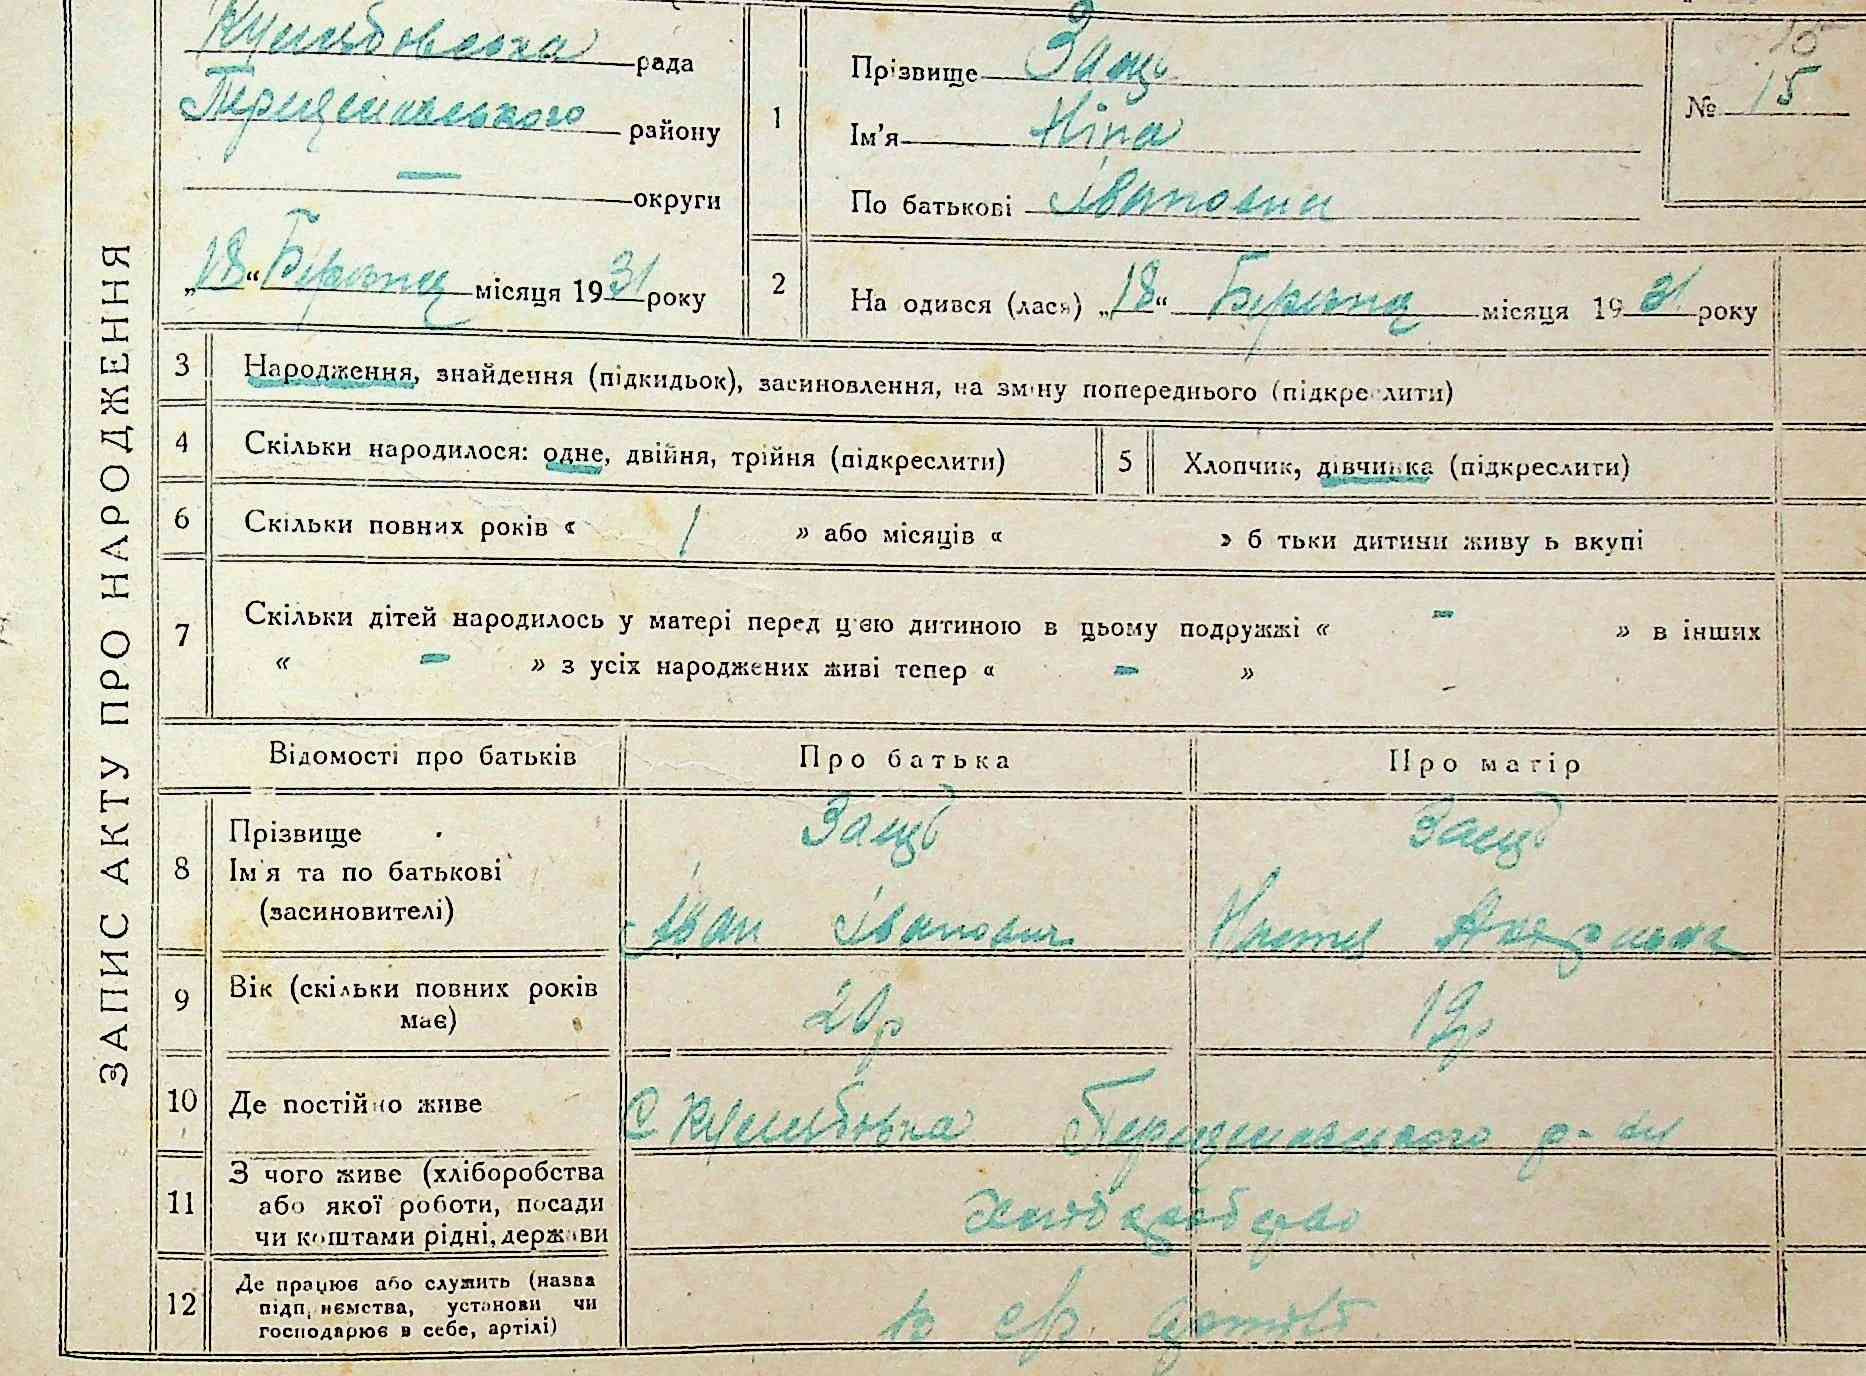 ЗАПИС АКТУ ПРО НАРОДЖЕННЯ
рада
району
— округи
„18“ Березня місяця 1931 року
1
Прізвище Заєць
Ім'я Ніна
По батькові Івановна
15
№ 15
2
На одився (лася) „18“ Березня місяця 1931 року
3
Народження, знайдення (підкидьок), засиновлення, на зміну попереднього (підкреслити)
4
Скільки народилося: одне, двійня, трійня (підкреслити)
5
Хлопчик, дівчинка (підкреслити)
6
Скільки повних років « 1 » або місяців « » б тьки дитини живу ь вкупі
7
Скільки дітей народилось у матері перед цією дитиною в цьому подружжі « - » в інших
« - » з усіх народжених живі тепер « - »
Відомості про батьків
Про батька
Про матір
8
Прізвище
Ім'я та по батькові
(засиновителі)
Заєць
Іван Іванович
Заєць
9
Вік (скільки повних років
має)
20 р
19 р
10
Де постійно живе
С р-ну
11
З чого живе (хліборобства
або якої роботи, посади
чи коштами рідні, держави
12
Де працює або служить (назва
підприємства, установи чи
господарює в себе, артілі)